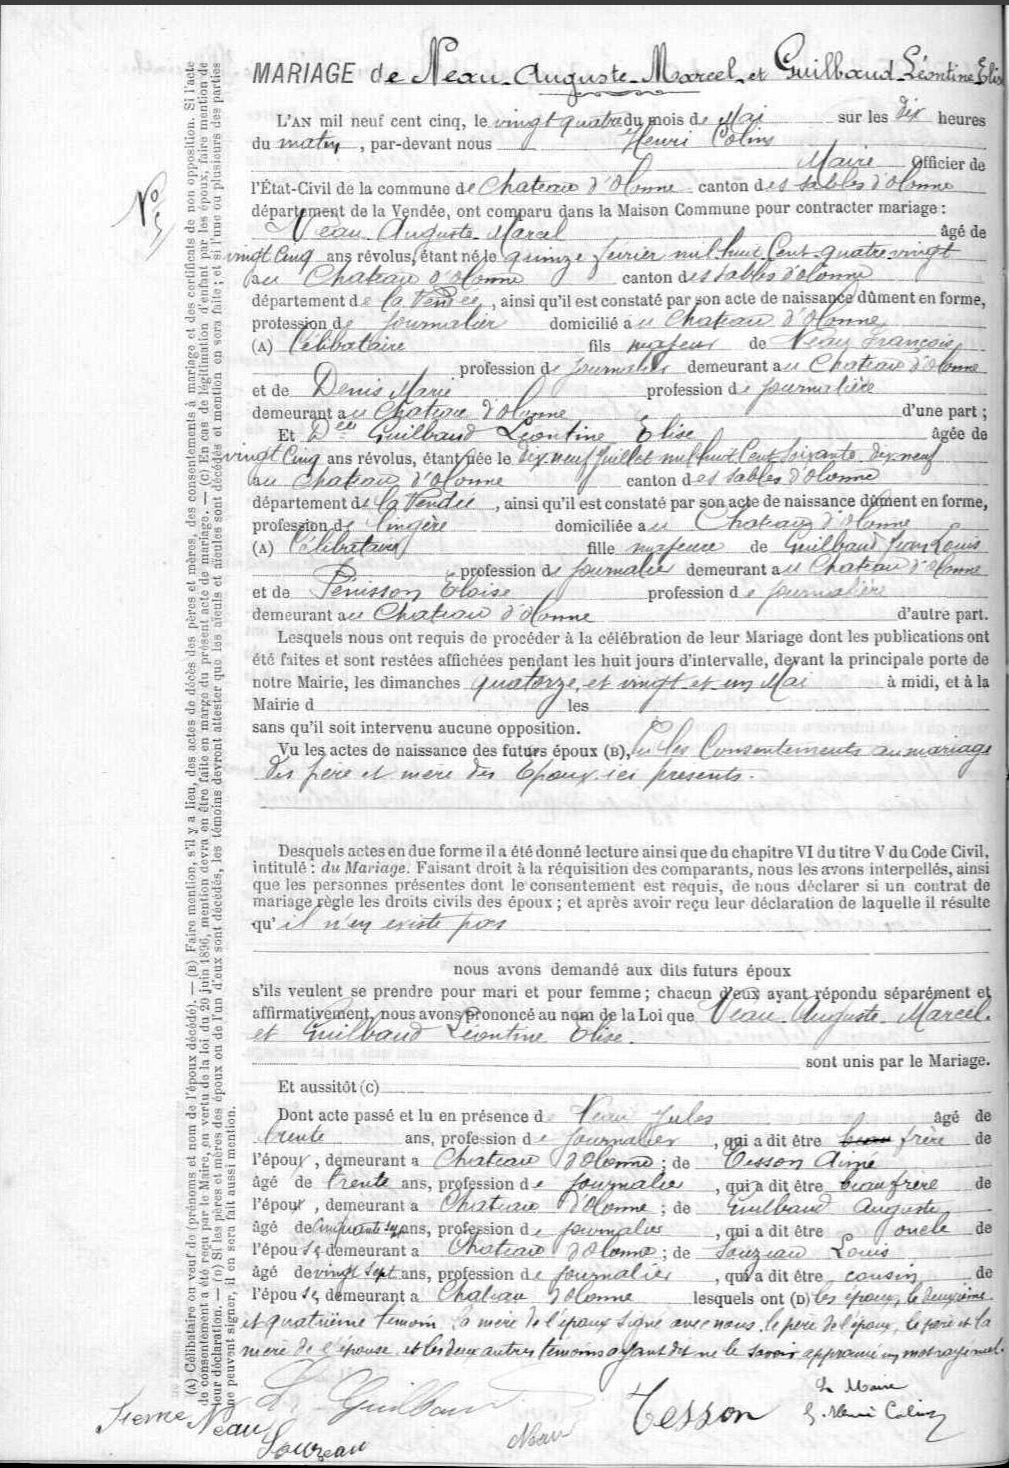 MARIAGE de Neau Auguste Marcel et Guilbaud Léontine Elise
L'AN mil neuf cent cinq, le vingt quatre du mois de Mai sur les dix heures
du matin, par-devant nous Henri Colins
Maire Officier de
l'État-Civil de la commune de Chateau d'Olonne canton des Sables d'Olonne
département de la Vendée, ont comparu dans la Maison Commune pour contracter mariage :
N° 5
Neau Auguste Marcel âgé de
vingt cinq ans révolus, étant né le quinze février mil huit cent quatre vingt
au Chateau d'Olonne canton des Sables d'olonne
département de la Vendée, ainsi qu'il est constaté par son acte de naissance dûment en forme,
profession de journalier domicilié au Chateau d'Olonne
(A) Célibataire fils majeur de Neau François
profession de journalier demeurant au Chateau d'Olonne
et de Denis Marie profession de journalière
demeurant au Chateau d'Olonne d'une part ;
Et Delle Guilbaud Léontine Elise âgée de
vingt cinq ans révolus, étant née le dix neuf Juillet mil huit cent soixante dix neuf
au Chateau d'Olonne canton des Sables d'olonne
département de la Vendée, ainsi qu'il est constaté par son acte de naissance dûment en forme,
profession de lingère domiciliée au Chateau d'Olonne
(A) Célibataire fille majeure de Guilbaud Jean Louis
profession de journalier demeurant au Chateau d'Olonne
et de Pénisson Eloise profession de journalière
demeurant au Chateau d'Olonne d'autre part.
Lesquels nous ont requis de procéder à la célébration de leur Mariage dont les publications ont
été faites et sont restées affichées pendant les huit jours d'intervalle, devant la principale porte de
notre Mairie, les dimanches quatorze et vingt et un Mai à midi, et à la
Mairie d les
sans qu'il soit intervenu aucune opposition.
Vu les actes de naissance des futurs époux (B), Vu les Consentements au mariage
des père et mère des Epoux ici présents.
Desquels actes en due forme il a été donné lecture ainsi que du chapitre VI du titre V du Code Civil,
intitulé : du Mariage. Faisant droit à la réquisition des comparants, nous les avons interpellés, ainsi
que les personnes présentes dont le consentement est requis, de nous déclarer si un contrat de
mariage règle les droits civils des époux ; et après avoir reçu leur déclaration de laquelle il résulte
qu'il n'en existe pas
nous avons demandé aux dits futurs époux
s'ils veulent se prendre pour mari et pour femme ; chacun d'eux ayant répondu séparément et
affirmativement, nous avons prononcé au nom de la Loi que Neau Auguste Marcel
et Guilbaud Léontine Elise.
sont unis par le Mariage.
Et aussitôt (C)
Dont acte passé et lu en présence de Neau Jules âgé de
trente ans, profession de journalier, qui a dit être beau frère de
l'époux, demeurant a Chateau d'Olonne ; de Tesson Aimé
âgé de trente ans, profession de journalier, qui a dit être beau frère de
l'époux, demeurant a Chateau d'Olonne ; de Guilbaud Auguste
âgé de cinquante six ans, profession de journalier, qui a dit être oncle de
l'épouse, demeurant a Chateau d'Olonne ; de Louzeau Louis
âgé de vingt sept ans, profession de journalier, qui a dit être cousin de
l'épouse, demeurant a Chateau d'Olonne lesquels ont (D) les époux, le deuxième
et quatrième témoin la mère de l'époux signé avec nous, le père de l'époux, le père et la
mère de l'épouse et les deux autres témoins ayant dit ne le savoir approuvé un mot rayé nul.
L. Guilbaud
Tesson
Le Maire
Henri Colins
Femme Neau
Louzeau
Neau
(A) Célibataire ou veuf de (prénoms et nom de l'époux décédé). — (B) Faire mention, s'il y a lieu, des actes de décès des pères et mères, des consentements à mariage et des certificats de non opposition. Si l'acte
de consentement a été reçu par le Maire, en vertu de la loi du 20 juin 1896, mention devra en être faite en marge du présent acte de mariage. — (C) En cas de légitimation d'enfant par les époux, faire mention de
leur déclaration. — (D) Si les pères et mères des époux ou de l'un d'eux sont décédés, les témoins devront attester que les aïeuls et aïeules sont décédés et mention en sera faite ; et si l'une ou plusieurs des parties
ne peuvent signer, il en sera fait aussi mention.